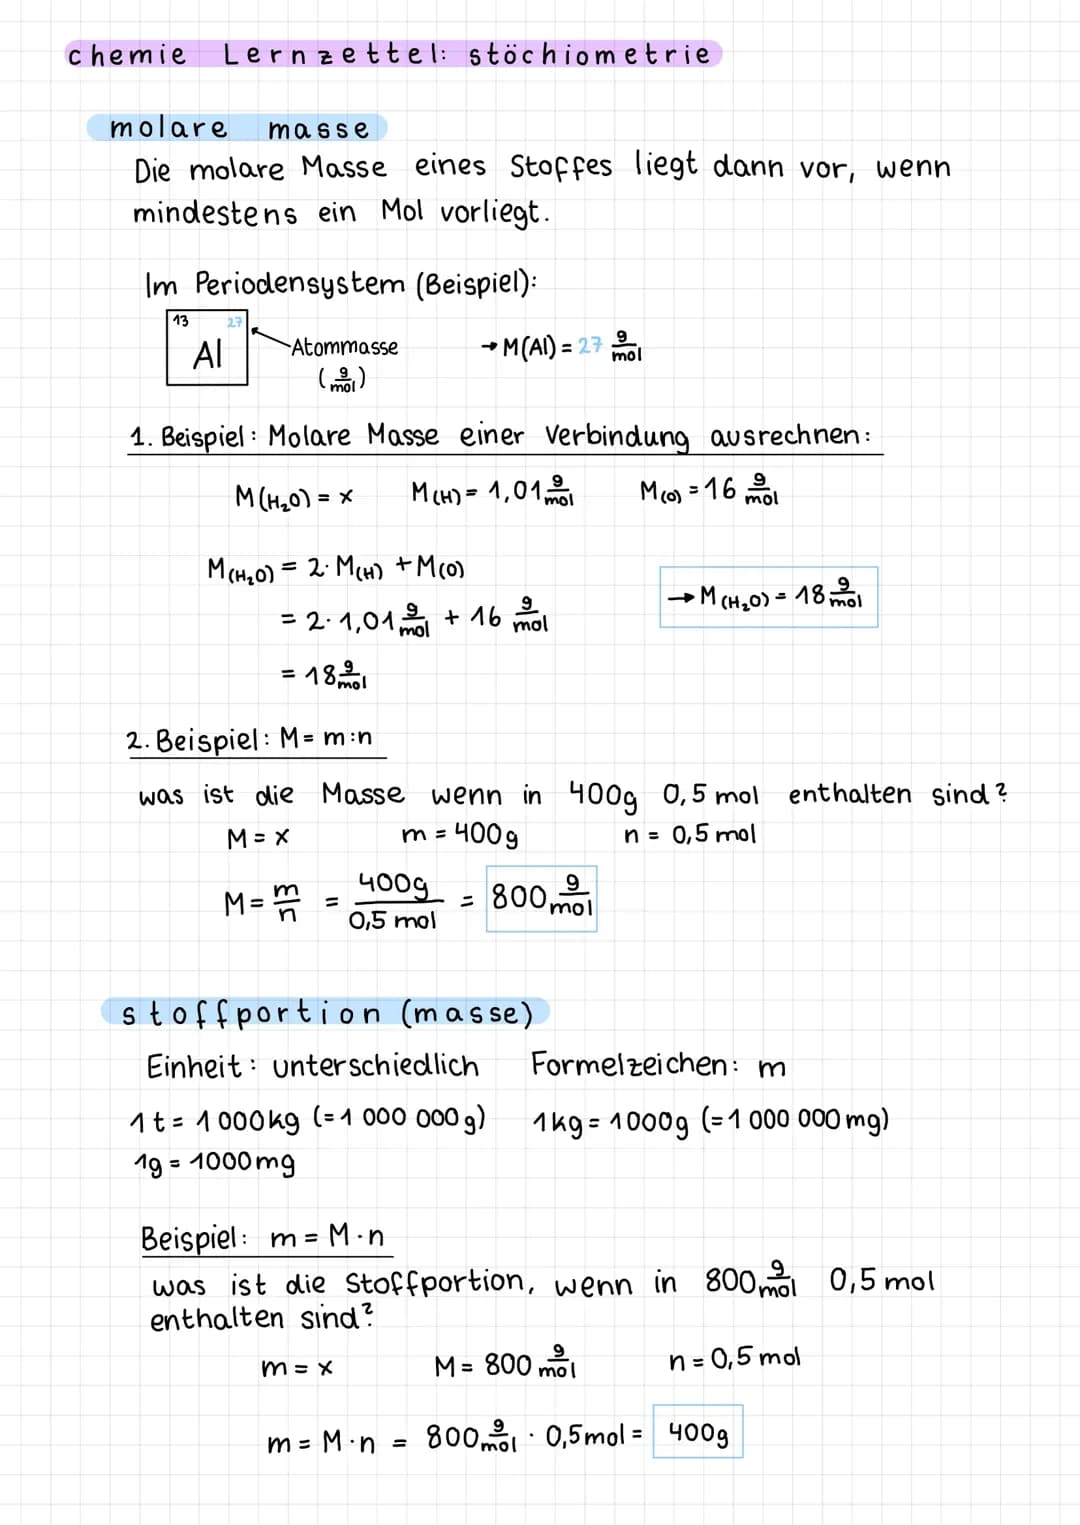 chemie Lernzettel: stöchiometrie
molare masse
Die molare Masse eines Stoffes liegt dann vor, wenn
mindestens ein Mol vorliegt.
Im Periodensystem (Beispiel):
13 27
Al
Atommasse
(g/mol)
→ M(Al) = 27 g/mol
1. Beispiel: Molare Masse einer Verbindung ausrechnen:
M(H₂O) = x M(H) = 1,01 g/mol M(O) = 16 g/mol
M(H₂O) = 2 · M(H) + M(O)
= 2 · 1,01 g/mol + 16 g/mol
→ M(H₂O) = 18 g/mol
= 18 g/mol
2. Beispiel: M = m:n
was ist die Masse wenn in 400g 0,5 mol enthalten sind?
M = x m = 400g n = 0,5 mol
M = m/n = 400g/0,5 mol = 800 g/mol
stoffportion (masse)
Einheit: unterschiedlich Formelzeichen: m
1t = 1000kg (=1 000 000g) 1kg = 1000g (=1 000 000mg)
1g = 1000mg
Beispiel: m = M · n
was ist die Stoffportion, wenn in 800 g/mol 0,5 mol
enthalten sind?
m = x M = 800 g/mol n = 0,5 mol
m = M · n = 800 g/mol · 0,5mol = 400g